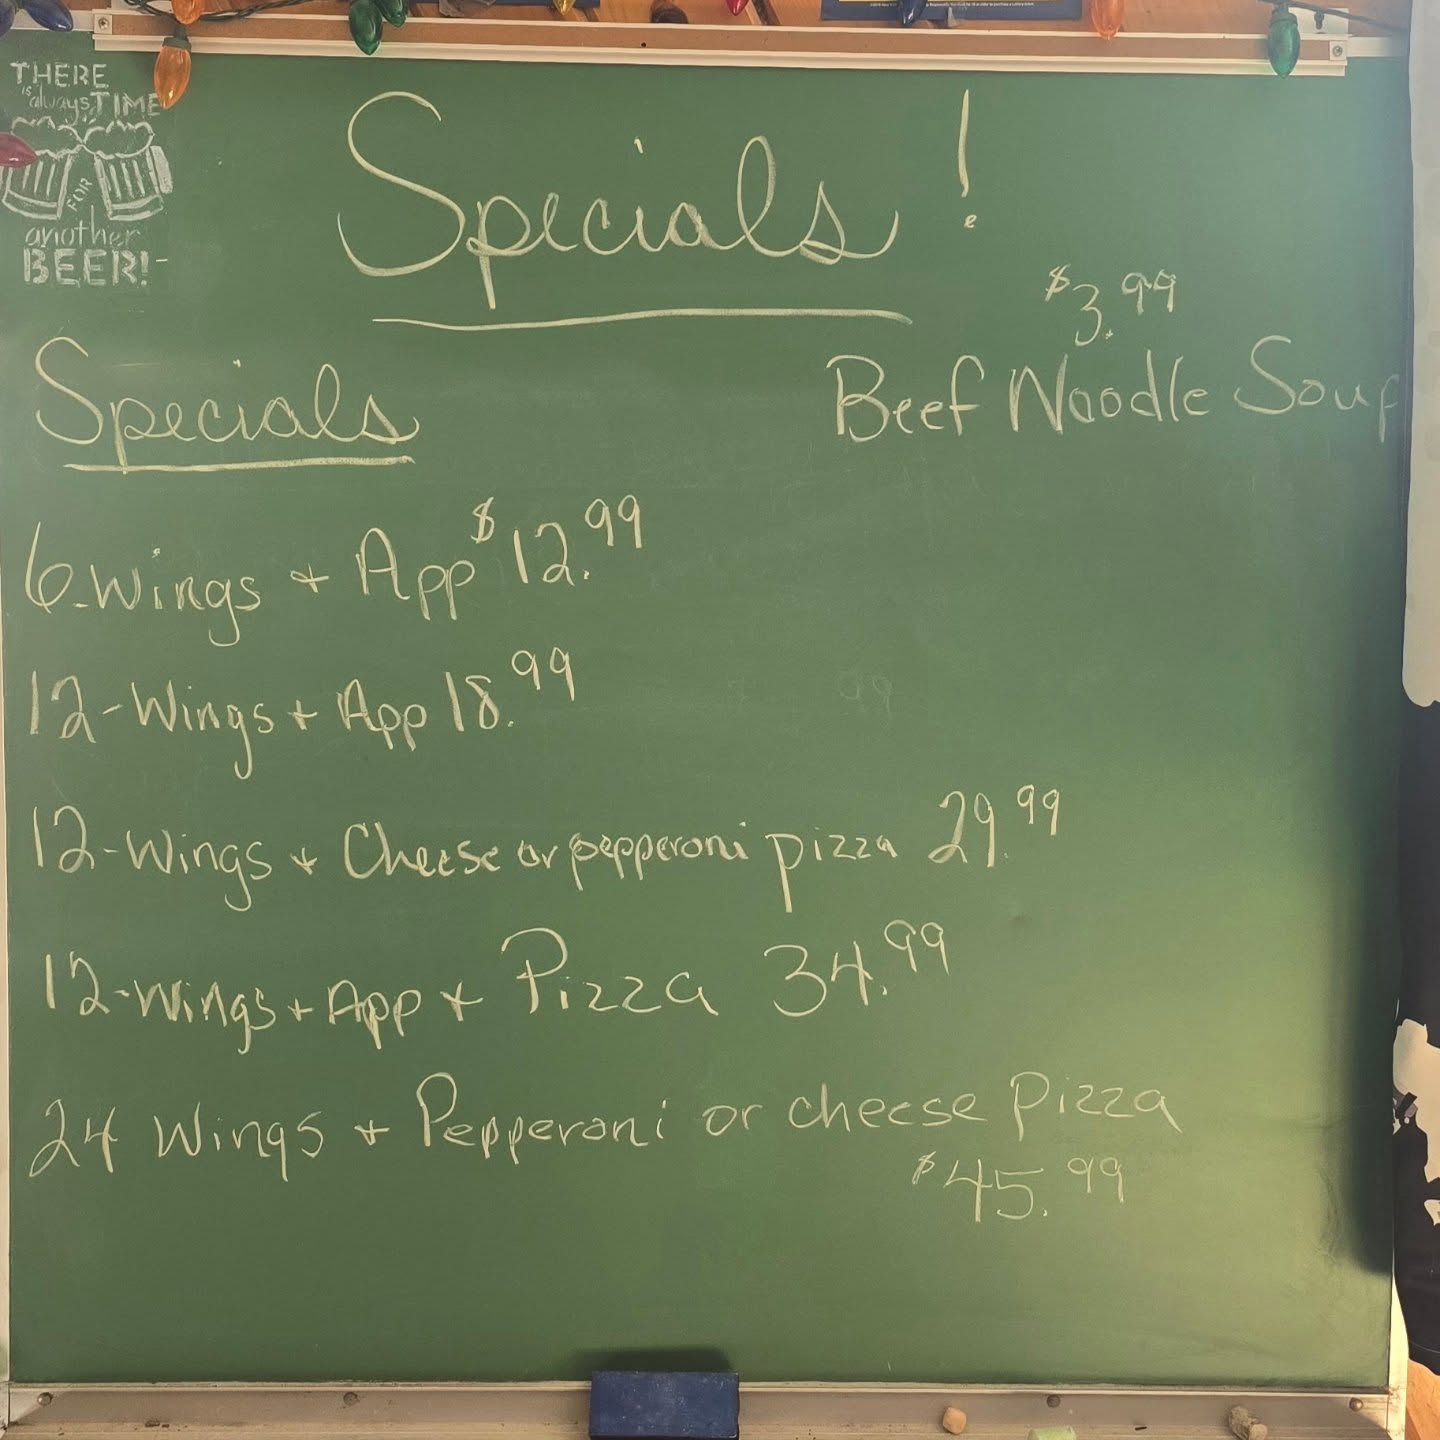 THERE
is always TIME
FOR
another
BEER!
Specials!
$3.99
Beef Noodle Soup
Specials
6-Wings + App $12.99
12-Wings + App 18.99
12-Wings + Cheese or pepperoni pizza 29.99
12-Wings + App + Pizza 34.99
24 Wings + Pepperoni or cheese Pizza
$45.99